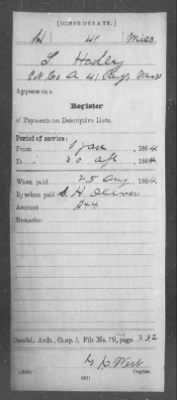 (CONFEDERATE.)
H 41 Miss
Co A 41 Regt Miss
Appears on a
Register
of Payments on Descriptive Lists.
Period of service:
From 1 Jan 1864
To 186
When paid 25 Aug 1864
By whom paid S. H.
Amount $44
Remarks:
Confed. Arch., Chap. 5, File No. 79, page 332
Copyist.